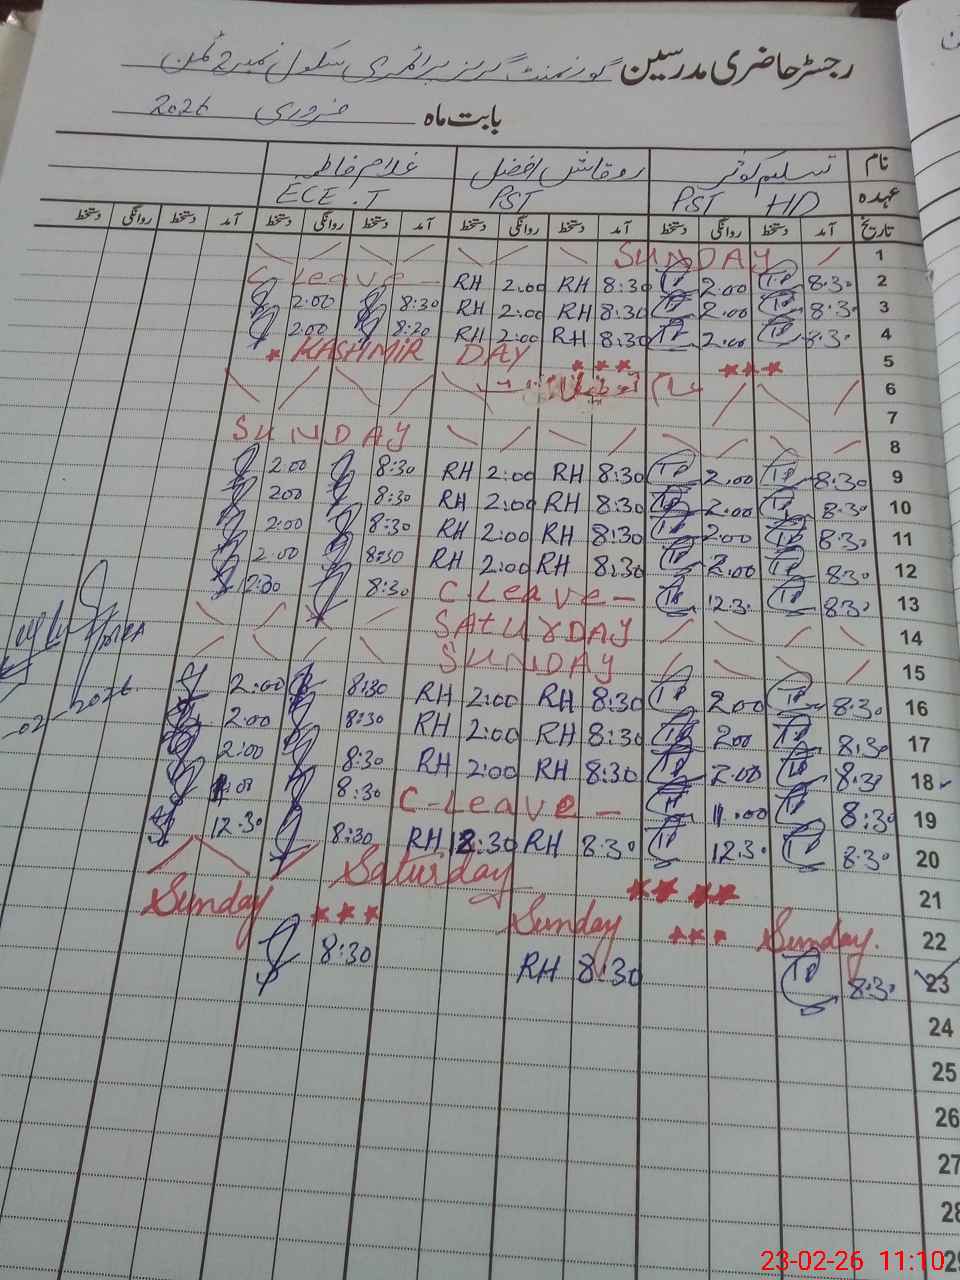 رجسٹر حاضری مدرسین گورنمنٹ گرلز پرائمری سکول نمبر 2 ٹمن
بابت ماہ فروری 2026
نام تسلیم کوثر روقاش افضل غلام فاطمہ
عہدہ PST HD PST ECE.T
تاریخ آمد دستخط روانگی دستخط آمد دستخط روانگی دستخط آمد دستخط روانگی دستخط آمد دستخط روانگی دستخط
SUNDAY 1
C-Leave- RH 2:00 RH 8:30 TP 2.00 TP 8:30 2
2:00 8:30 RH 2:00 RH 8:30 TP 2.00 TP 8:30 3
2:00 8:30 RH 2:00 RH 8:30 TP 2.00 TP 8:30 4
* KASHMIR DAY *** *** 5
عام 6
7
SUNDAY 8
2:00 8:30 RH 2:00 RH 8:30 TP 2.00 TP 8:30 9
200 8:30 RH 2:00 RH 8:30 TP 2.00 TP 8:30 10
2:00 8:30 RH 2:00 RH 8:30 TP 2.00 TP 8:30 11
2:00 8:30 RH 2:00 RH 8:30 TP 2.00 TP 8:30 12
8:30 C-Leave- TP 12.30 TP 8:30 13
SATURDAY 14
SUNDAY 15
2:00 8:30 RH 2:00 RH 8:30 TP 2.00 TP 8:30 16
2:00 8:30 RH 2:00 RH 8:30 TP 200 TP 8:30 17
2:00 8:30 RH 2:00 RH 8:30 TP 2.00 TP 8:30 18
8:30 C-Leave- TP 11.00 TP 8:30 19
12.30 8:30 RH 12:30 RH 8:30 TP 12.30 TP 8:30 20
Saturday ** ** 21
Sunday *** Sunday *** Sunday. 22
8:30 RH 8:30 TP 8:30 23
24
25
26
27
28
29
23-02-26 11:10